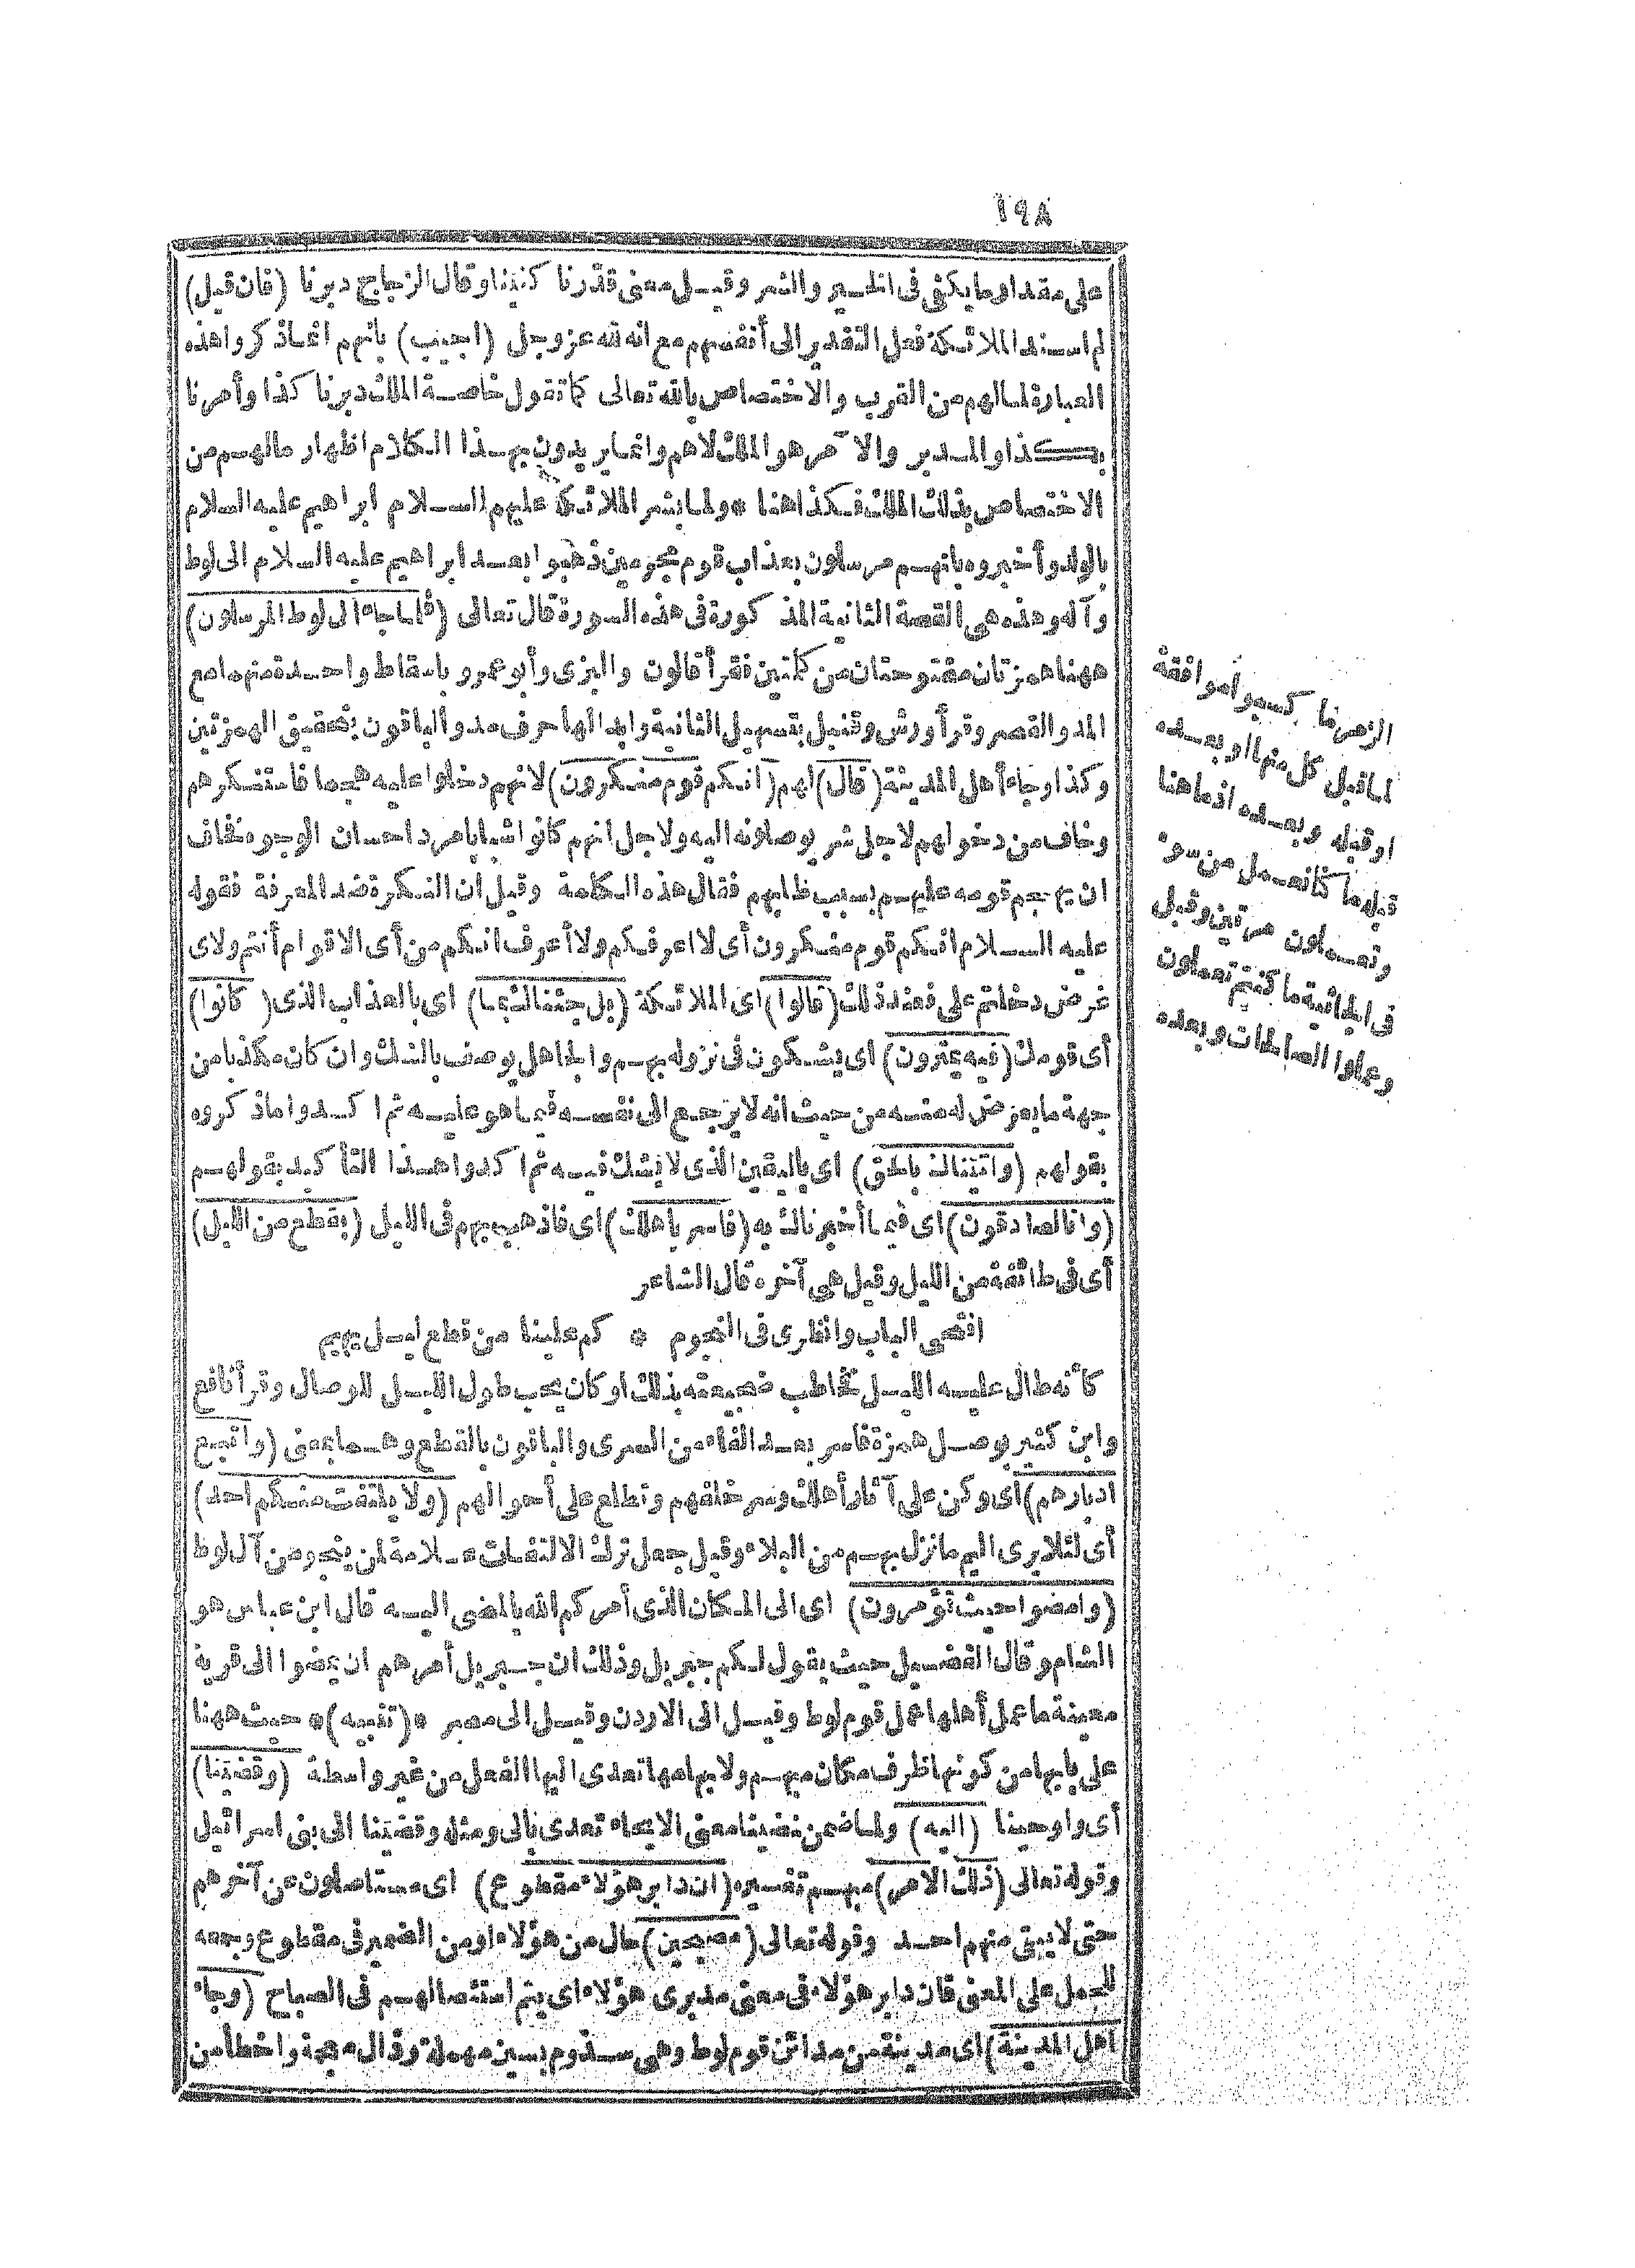 ١٩٨
على مقدار ما يكفى فى الخير والشر وقيل معنى قدّرنا كتبنا وقال الزجاج دبرنا (فان قيل)
لم اسند الملائكة فعل التقدير الى أنفسهم مع انه لله عز وجل (اجيب) بانهم انماذ كروا هذه
العبارة لمالهم من القرب والاختصاص بالله تعالى كما تقول خاصة الملك دبرنا كذا وأمرنا
بكذا والمدبر والآمر هو الملك لاهم وانما يريدون بهذا الكلام اظهار مالهم من
الاختصاص بذلك الملك فكذا هنا * ولما بشر الملائكة عليهم السلام ابراهيم عليه السلام
بالولد وأخبروه بانهم مرسلون بعذاب قوم مجرمين ذهبوا بعد ابراهيم عليه السلام الى لوط
وآله وهذه هى القصة الثانية المذكورة فى هذه السورة قال تعالى (فلما جاء آل لوط المرسلون)
ههنا همزتان مفتوحتان من كلمتين فقرأ قالون والبزى وأبو عمرو باسقاط واحدة منهما مع
المد والقصر وقرأ ورش وقنبل بتسهيل الثانية وابدالها حرف مد والباقون بتحقيق الهمزتين
وكذا وجاء أهل المدينة (قال) لهم (انكم قوم منكرون) لانهم دخلوا عليه هجما فاستنكرهم
وخاف من دخولهم لاجل شر يوصلونه اليه ولاجل انهم كانوا شبابا مردا حسان الوجوه نخاف
ان يهجم قومه عليهم بسبب طلبهم فقال هذه الكلمة وقيل ان النكرة ضد المعرفة فقوله
عليه السلام انكم قوم منكرون أى لا اعرفكم ولا أعرف انكم من أى الاقوام أنتم ولاى
غرض دخلتم على فعند ذلك (قالوا) اى الملائكة (بل جئناك بما) اى بالعذاب الذى (كانوا)
أى قومك (فيه يمترون) اى يشكون فى نزوله بهم والجاهل يوصف بالشك وان كان مكذبا من
جهة ما يعرض له منه من حيث انه لا يرجع الى نفسه فيما هو عليه ثم اكدوا ماذ كروه
بقولهم (واتيناك بالحق) اى باليقين الذى لا يشك فيه ثم اكدوا هذا التأكيد بقولهم
(وانا لصادقون) اى فيما أخبرناك به (فاسر باهلك) اى فاذهب بهم فى الليل (بقطع من الليل)
أى فى طائفة من الليل وقيل هى آخره قال الشاعر
افتحى الباب وانظرى فى النجوم * كم علينا من قطع ليل بهيم
كأنه طال عليه الليل نخاطب ضجيعته بذلك او كان يحب طول الليل للوصال وقرأ نافع
وابن كثير بوصل همزة فاسر بعد الفاء من السرى والباقون بالقطع وهما بمعنى (واتبع
ادبارهم) اى وكن على آثار أهلك وسر خلفهم وتطلع على أحوالهم (ولا يلتفت منكم احد)
أى لئلا يرى اليم ما نزل بهم من البلاء وقيل جعل ترك الالتفات علامة لمن ينجو من آل لوط
(وامضوا حيث تؤمرون) اى الى المكان الذى أمركم الله بالمضى اليه قال ابن عباس هو
الشام وقال الفضيل حيث يقول لكم جبريل وذلك ان جبريل أمرهم ان يمضوا الى قرية
معينة ما عمل أهلها عمل قوم لوط وقيل الى الاردن وقيل الى مصر *(تنبيه)* حيث ههنا
على بابها من كونها ظرف مكان مبهم ولابهامها تعدى اليها الفعل من غير واسطة (وقضينا)
أى واوحينا (اليه) ولما ضمن قضينا معنى الايحاء تعدى بالى ومثله وقضينا الى بنى اسرائيل
وقوله تعالى (ذلك الامر) مبهم تفسيره (ان دابر هؤلاء مقطوع) اى مستاصلون عن آخرهم
حتى لا يبقى منهم احد وقوله تعالى (مصبحين) حال من هؤلاء او من الضمير فى مقطوع وجمعه
للحمل على المعنى فان دابر هؤلاء فى معنى مدبرى هؤلاء اى يتم استئصالهم فى الصباح (وجاء
اهل المدينة) اى مدينة من مدائن قوم لوط وهى سذوم بسين مهملة وذال معجمة واخطأ من
الزمر ما كسبوا موافقة
لما قبل كل منهما او بعده
او قبله وبعده اذ ما هنا
قبله ما كنا نعمل من سوء
وتعملون مرتين وقبل
فى الجاثية ما كنتم تعملون
وعملوا الصالحات وبعده